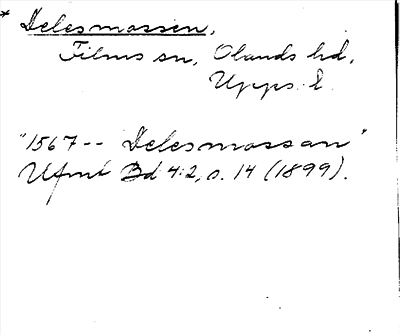 * Delesmossen,
Films sn, Olands hd,
Upps. l.
"1567-- Delesmossan"
Ufmt Bd 4:2, s. 14 (1899).